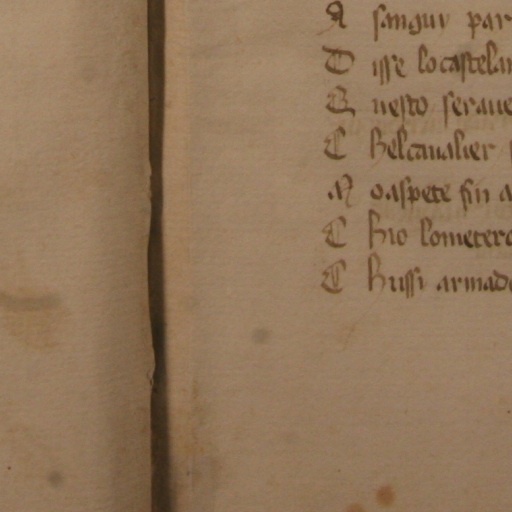 A sangui par
D isse lo castelan
Q uesto serave
C hel cavalier
M o aspete fin a
C hio lo metero
C hussi armado